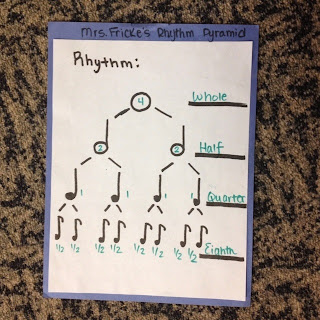 Mrs. Fricke's Rhythm Pyramid
Rhythm:
4 Whole
2 2 Half
1 1 1 1 Quarter
1/2 1/2 1/2 1/2 1/2 1/2 1/2 1/2 Eighth